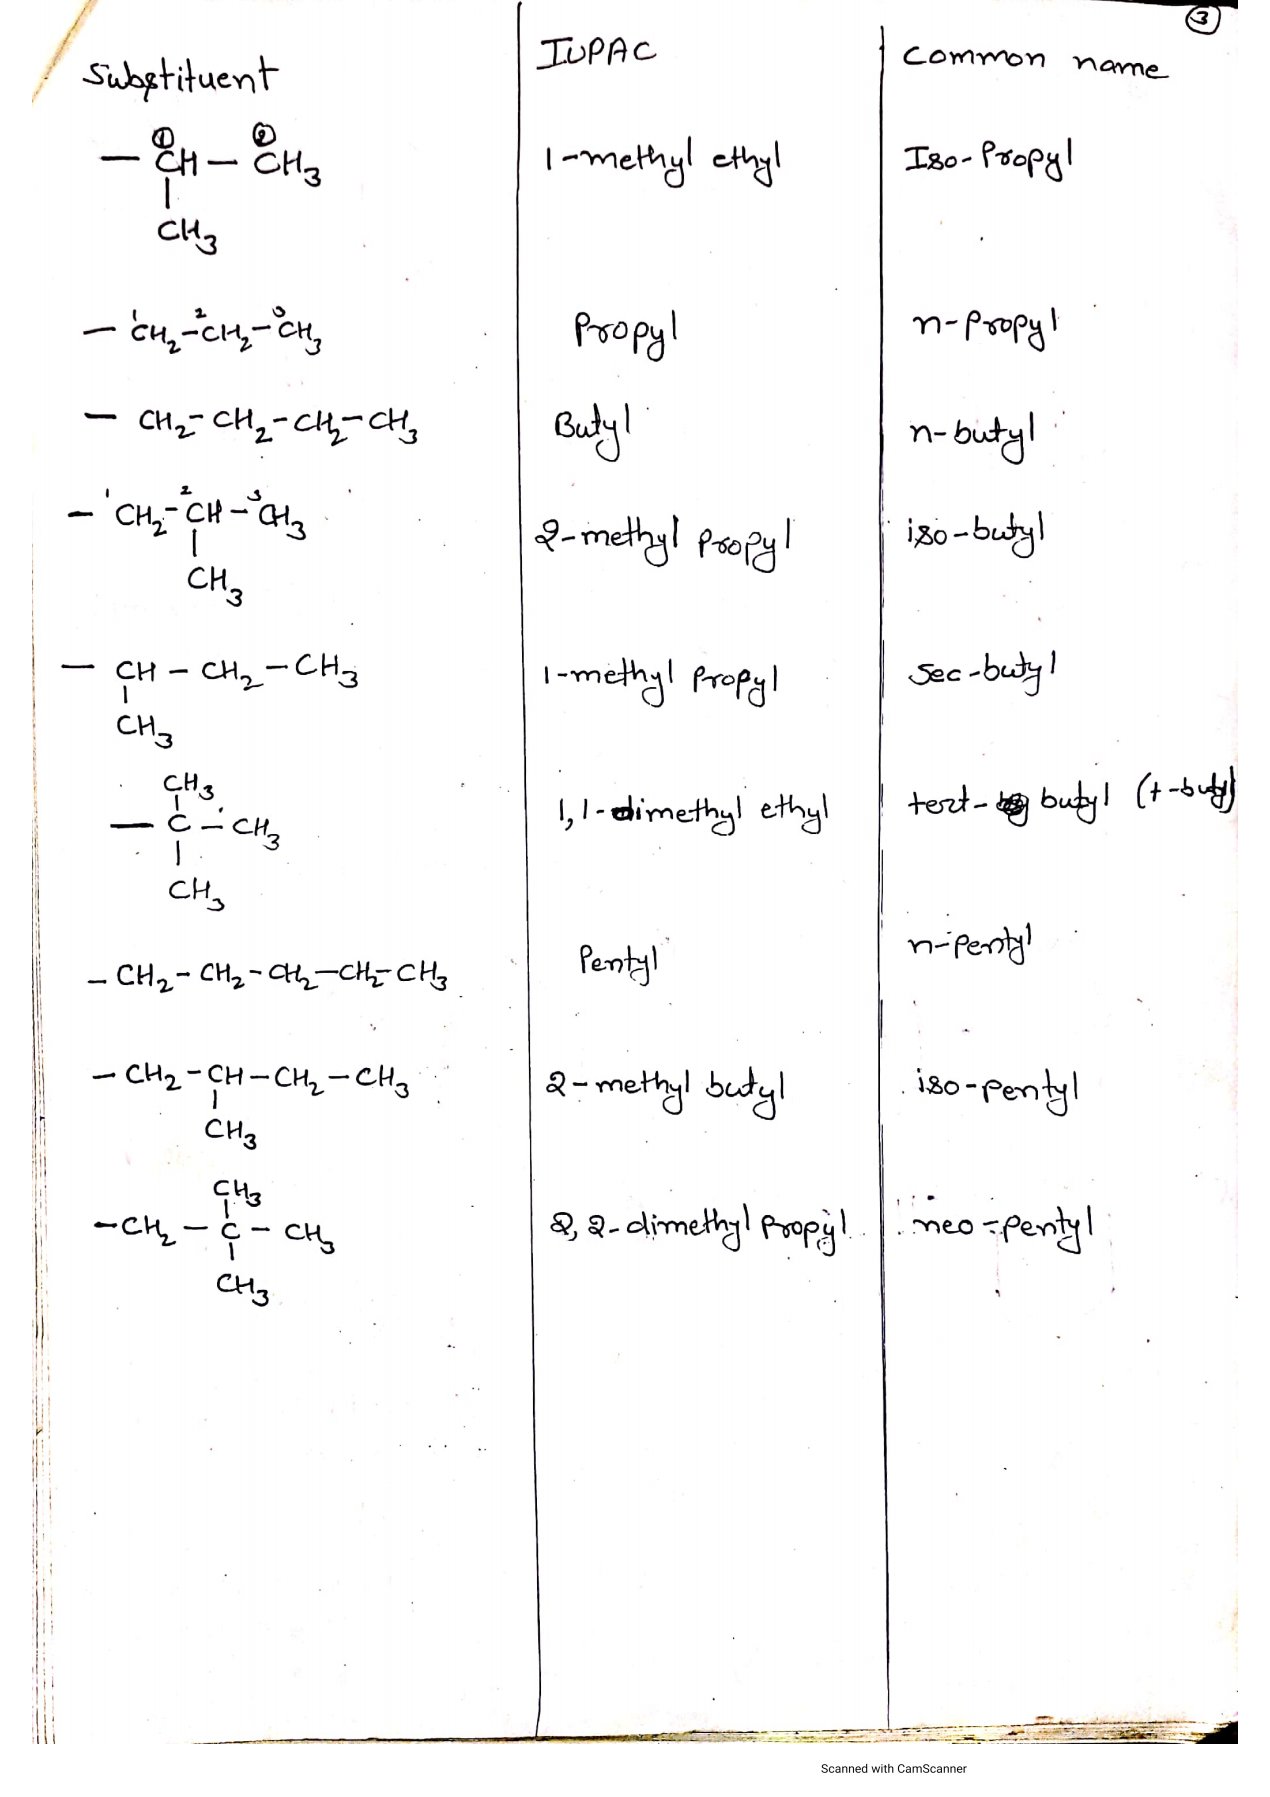 3
Substituent IUPAC Common name
① ②
— CH — CH3 1-methyl ethyl Iso-Propyl
|
CH3
1 2 3
— CH2-CH2-CH3 Propyl n-propyl
— CH2-CH2-CH2-CH3 Butyl n-butyl
1 2 3
— CH2-CH-CH3 2-methyl propyl iso-butyl
|
CH3
— CH — CH2 — CH3 1-methyl propyl sec-butyl
|
CH3
CH3
|
— C — CH3 1,1-dimethyl ethyl tert- butyl (t-butyl)
|
CH3
— CH2-CH2-CH2-CH2-CH3 Pentyl n-pentyl
— CH2-CH-CH2-CH3 2-methyl butyl iso-pentyl
|
CH3
CH3
|
— CH2 — C — CH3 2,2-dimethyl propyl neo-pentyl
|
CH3
Scanned with CamScanner